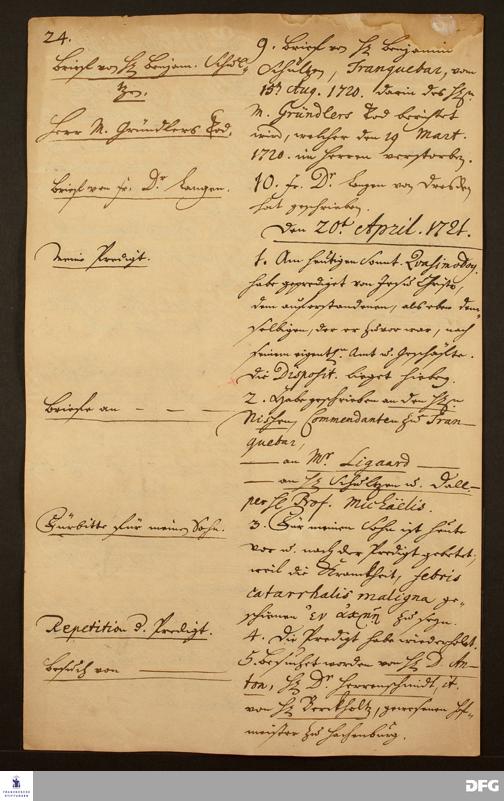 24.
Briefe von H. Benjam. Schul-
zen.
Herr M. Gründlers Tod.
Brief von Fr. Dr. Langen.
Meine Predigt.
Briefe an — — —
Fürbitte für meinen Sohn.
Repetition d. Predigt.
Besuch von
9. Brief von H. Benjamin
Schultzen, Tranquebar, vom
Aug. 1720. darin des H.
M. Gründlers Tod berichtet
wird, welcher den 19 Mart.
1720. im Herrn verstorben.
10. Fr. Dr. Langen von Dresden
hat geschrieben.
Den 20t. April. 1721.
1. Am heutigen Sonnt. Quasimodog.
habe geprediget von Jesu Christo,
dem auferstandenen, als eben dem-
selbigen, der er zuvor war, nach
seinem eigentl. Amt u. Geschäffte.
Die Disposit. lieget hierbey.
2. Habe geschrieben an den H.
Nissen, Commendanten zu Tran-
quebar,
— an Mr. Ligaard
— an H. Schultzen u. Dall-
per H. Prof. Michaëlis.
3. Für meinen Sohn ist heute
vor u. nach der Predigt gebetet,
weil die Kranckheit, febris
catarrhalis maligna ge-
schienen ἐν ἀκμῇ zu seyn.
4. Die Predigt habe wiederholet.
5. Besuchet worden von H. D. An-
ton, H. Dr. Herrenschmidt, it.
von H. Berckholtz, gewesenen Hof-
meister zu Hachenburg.
FRANCKESCHE
STIFTUNGEN
DFG